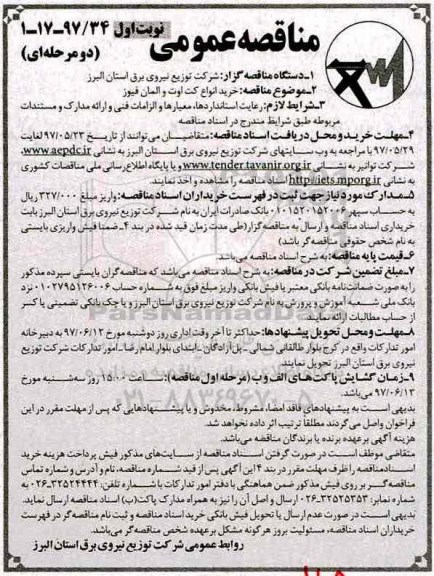 مناقصه عمومی
نوبت اول ۹۷/۳۴-۱۷-۱
(دو مرحله‌ای)
۱-دستگاه مناقصه گزار: شرکت توزیع نیروی برق استان البرز
۲-موضوع مناقصه: خرید انواع کت اوت و المان فیوز
۳-شرایط لازم: رعایت استانداردها، معیارها و الزامات فنی و ارائه مدارک و مستندات
مربوطه طبق شرایط مندرج در اسناد مناقصه
۴-مهلت خرید و محل دریافت اسناد مناقصه: متقاضیان می توانند از تاریخ ۹۷/۰۵/۲۳ لغایت
۹۷/۰۵/۲۹ با مراجعه به وب سایتهای شرکت توزیع نیروی برق استان البرز به نشانی www.aepdc.ir،
شرکت توانیر به نشانی www.tender.tavanir.org.ir و یا پایگاه اطلاع رسانی ملی مناقصات کشوری
به نشانی http://iets.mporg.ir اسناد مناقصه را مشاهده و اخذ نمایند.
۵-مدارک مورد نیاز جهت ثبت در فهرست خریداران اسناد مناقصه: واریز مبلغ ۳۲۷/۰۰۰ ریال
به حساب سپهر ۰۱۰۱۵۲۰۱۵۲۰۰۶ بانک صادرات ایران به نام شرکت توزیع نیروی برق استان البرز بابت
خریداری اسناد مناقصه و ارسال به مناقصه گزار (طی مدت زمان قید شده در بند ۴، ضمنا فیش واریزی بایستی
به نام شخص حقوقی مناقصه گر باشد)
۶-قیمت پایه مناقصه: به شرح اسناد مناقصه می باشد.
۷-مبلغ تضمین شرکت در مناقصه: به شرح اسناد مناقصه می باشد که مناقصه گران بایستی سپرده مذکور
را به صورت ضمانت نامه بانکی معتبر یا فیش بانکی واریز مبلغ فوق به شماره حساب ۰۱۰۲۷۹۵۱۳۶۰۰۶ نزد
بانک ملی شعبه آموزش و پرورش به نام شرکت توزیع نیروی برق استان البرز و یا چک بانکی تضمینی یا کسر
از حساب مطالبات ارائه نمایند.
۸-مهلت و محل تحویل پیشنهادها: حداکثر تا آخر وقت اداری روز دوشنبه مورخ ۹۷/۰۶/۱۲ به دبیرخانه
امور تدارکات واقع در کرج بلوار طالقانی شمالی -پل آزادگان -ابتدای بلوار امام رضا-امور تدارکات شرکت توزیع
نیروی برق استان البرز تحویل نمایند.
۹-زمان گشایش پاکت های الف و ب (مرحله اول مناقصه): ساعت ۱۵:۰۰ روز سه شنبه مورخ
۹۷/۰۶/۱۳ می باشد.
بدیهی است به پیشنهادهای فاقد امضا، مشروط، مخدوش و یا پیشنهادهایی که پس از مهلت مقرر در این
فراخوان واصل می گردند مطلقا ترتیب اثر داده نخواهد شد.
هزینه آگهی بر عهده برنده یا برندگان مناقصه می باشد.
متقاضی موظف است در صورت گرفتن اسناد مناقصه از سایت‌های مذکور فیش پرداخت هزینه خرید
اسناد مناقصه را ظرف مهلت مقرر در بند ۴ این آگهی پس از قید شماره مناقصه، نام و آدرس و شماره تماس
مناقصه گر بر روی فیش مذکور ضمن هماهنگی با دفتر امور تدارکات با شماره تلفن: ۳۲۵۲۴۴۴۴-۰۲۶ به
شماره نمابر: ۳۲۵۲۵۳۵۳-۰۲۶ ارسال و اصل آن را نیز به همراه مدارک پاکت (ب) اسناد مناقصه ارسال نماید.
بدیهی است در صورت عدم ارسال یا تحویل فیش بانکی خرید اسناد مناقصه و ثبت نام مناقصه گر در فهرست
خریداران اسناد مناقصه، مسئولیت بروز هر گونه مشکل بر عهده شخص مناقصه گر می باشد.
روابط عمومی شرکت توزیع نیروی برق استان البرز